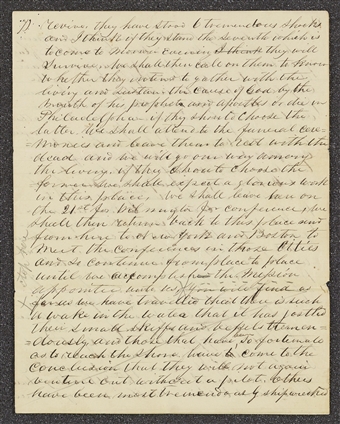 revive they have stood 6 tremendous shocks
and I think if they stand the seventh which is
to come to Morrow evening I think they will
survive. We shall then call on them to know
whether they intend to gather with the
living and sustain the cause of God by the
breath of his prophets and apostles or die in
Philadelphia if they should choose the
latter We shall attend to the funeral cere
=monies and leave them to rest with the
dead and we will go our way among
the living. if they should choose the
former we shall expect a glorious work
in this place, We shall leave here on
the 21st for Wilmington for conference, we
shall then return back to this place and
from here to New York and Boston to
meet the conferences in those Cities
and so continue from place to place
until we accomplish the Mission
appointed unto us, you will find as
far as we have travelled that there is such
a wake in the water that it has jostled
their small skiffs and vessels tremen
=dously and those that have so fortunate
as to reach the shore, have come to the
conclusion that they will not again
venture out without a pilot. Others
have been most tremendously shipwrecked